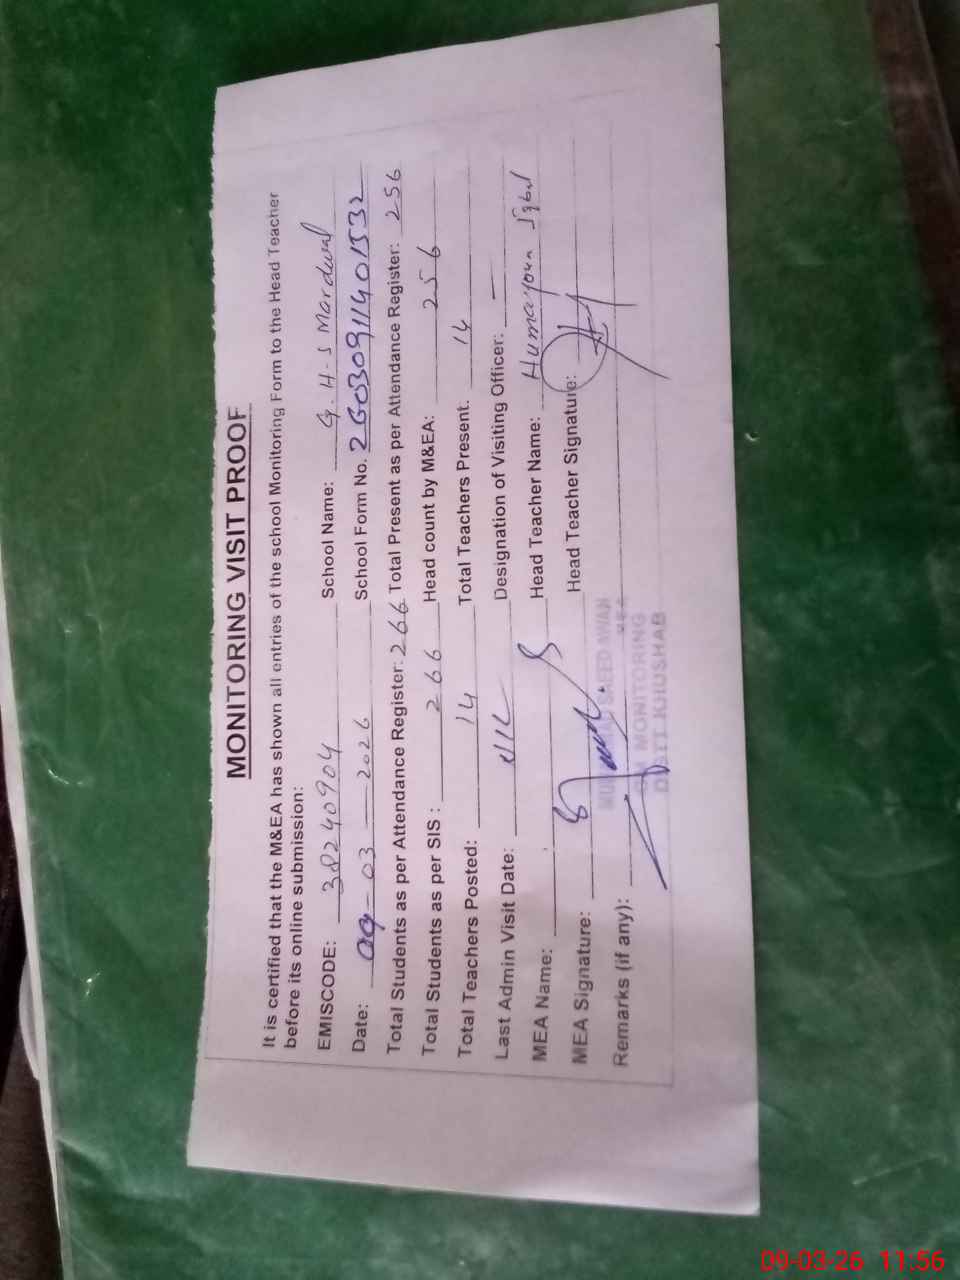 MONITORING VISIT PROOF
It is certified that the M&EA has shown all entries of the school Monitoring Form to the Head Teacher
before its online submission:
EMISCODE: 38240904 School Name: G. H-S Mardwal
Date: 09-03-2026 School Form No. 26030911401532
Total Students as per Attendance Register: 266 Total Present as per Attendance Register: 256
Total Students as per SIS : 266 Head count by M&EA: 256
Total Teachers Posted: 14 Total Teachers Present. 14
Last Admin Visit Date: NIL Designation of Visiting Officer: —
MEA Name: Head Teacher Name: Humayoun Iqbal
MEA Signature: Head Teacher Signature:
Remarks (if any):
SAEED AWAN
MEA
MONITORING
DISTT. KHUSHAB
09-03-26 11:56